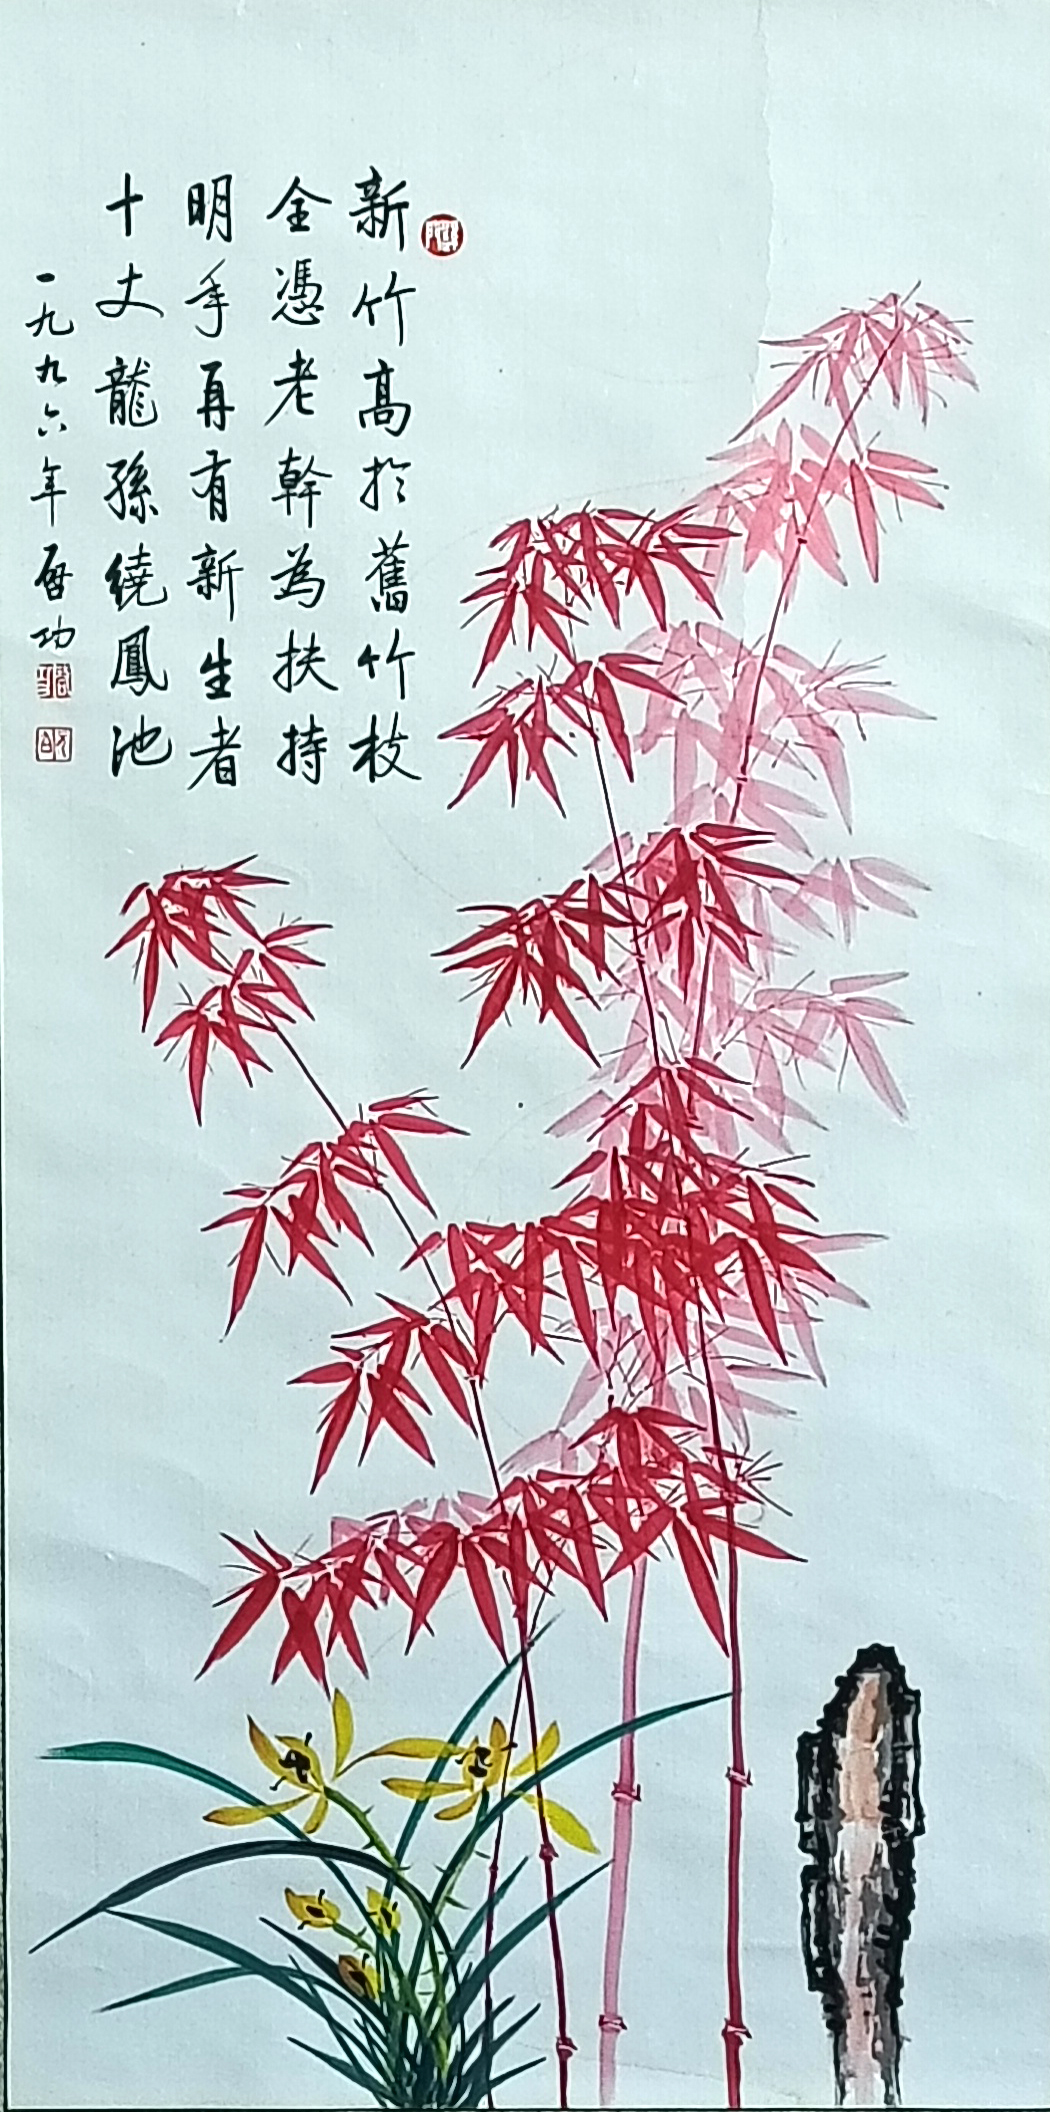 新竹高於舊竹枝
全憑老幹為扶持
明年再有新生者
十丈龍孫繞鳳池
一九九六年啓功